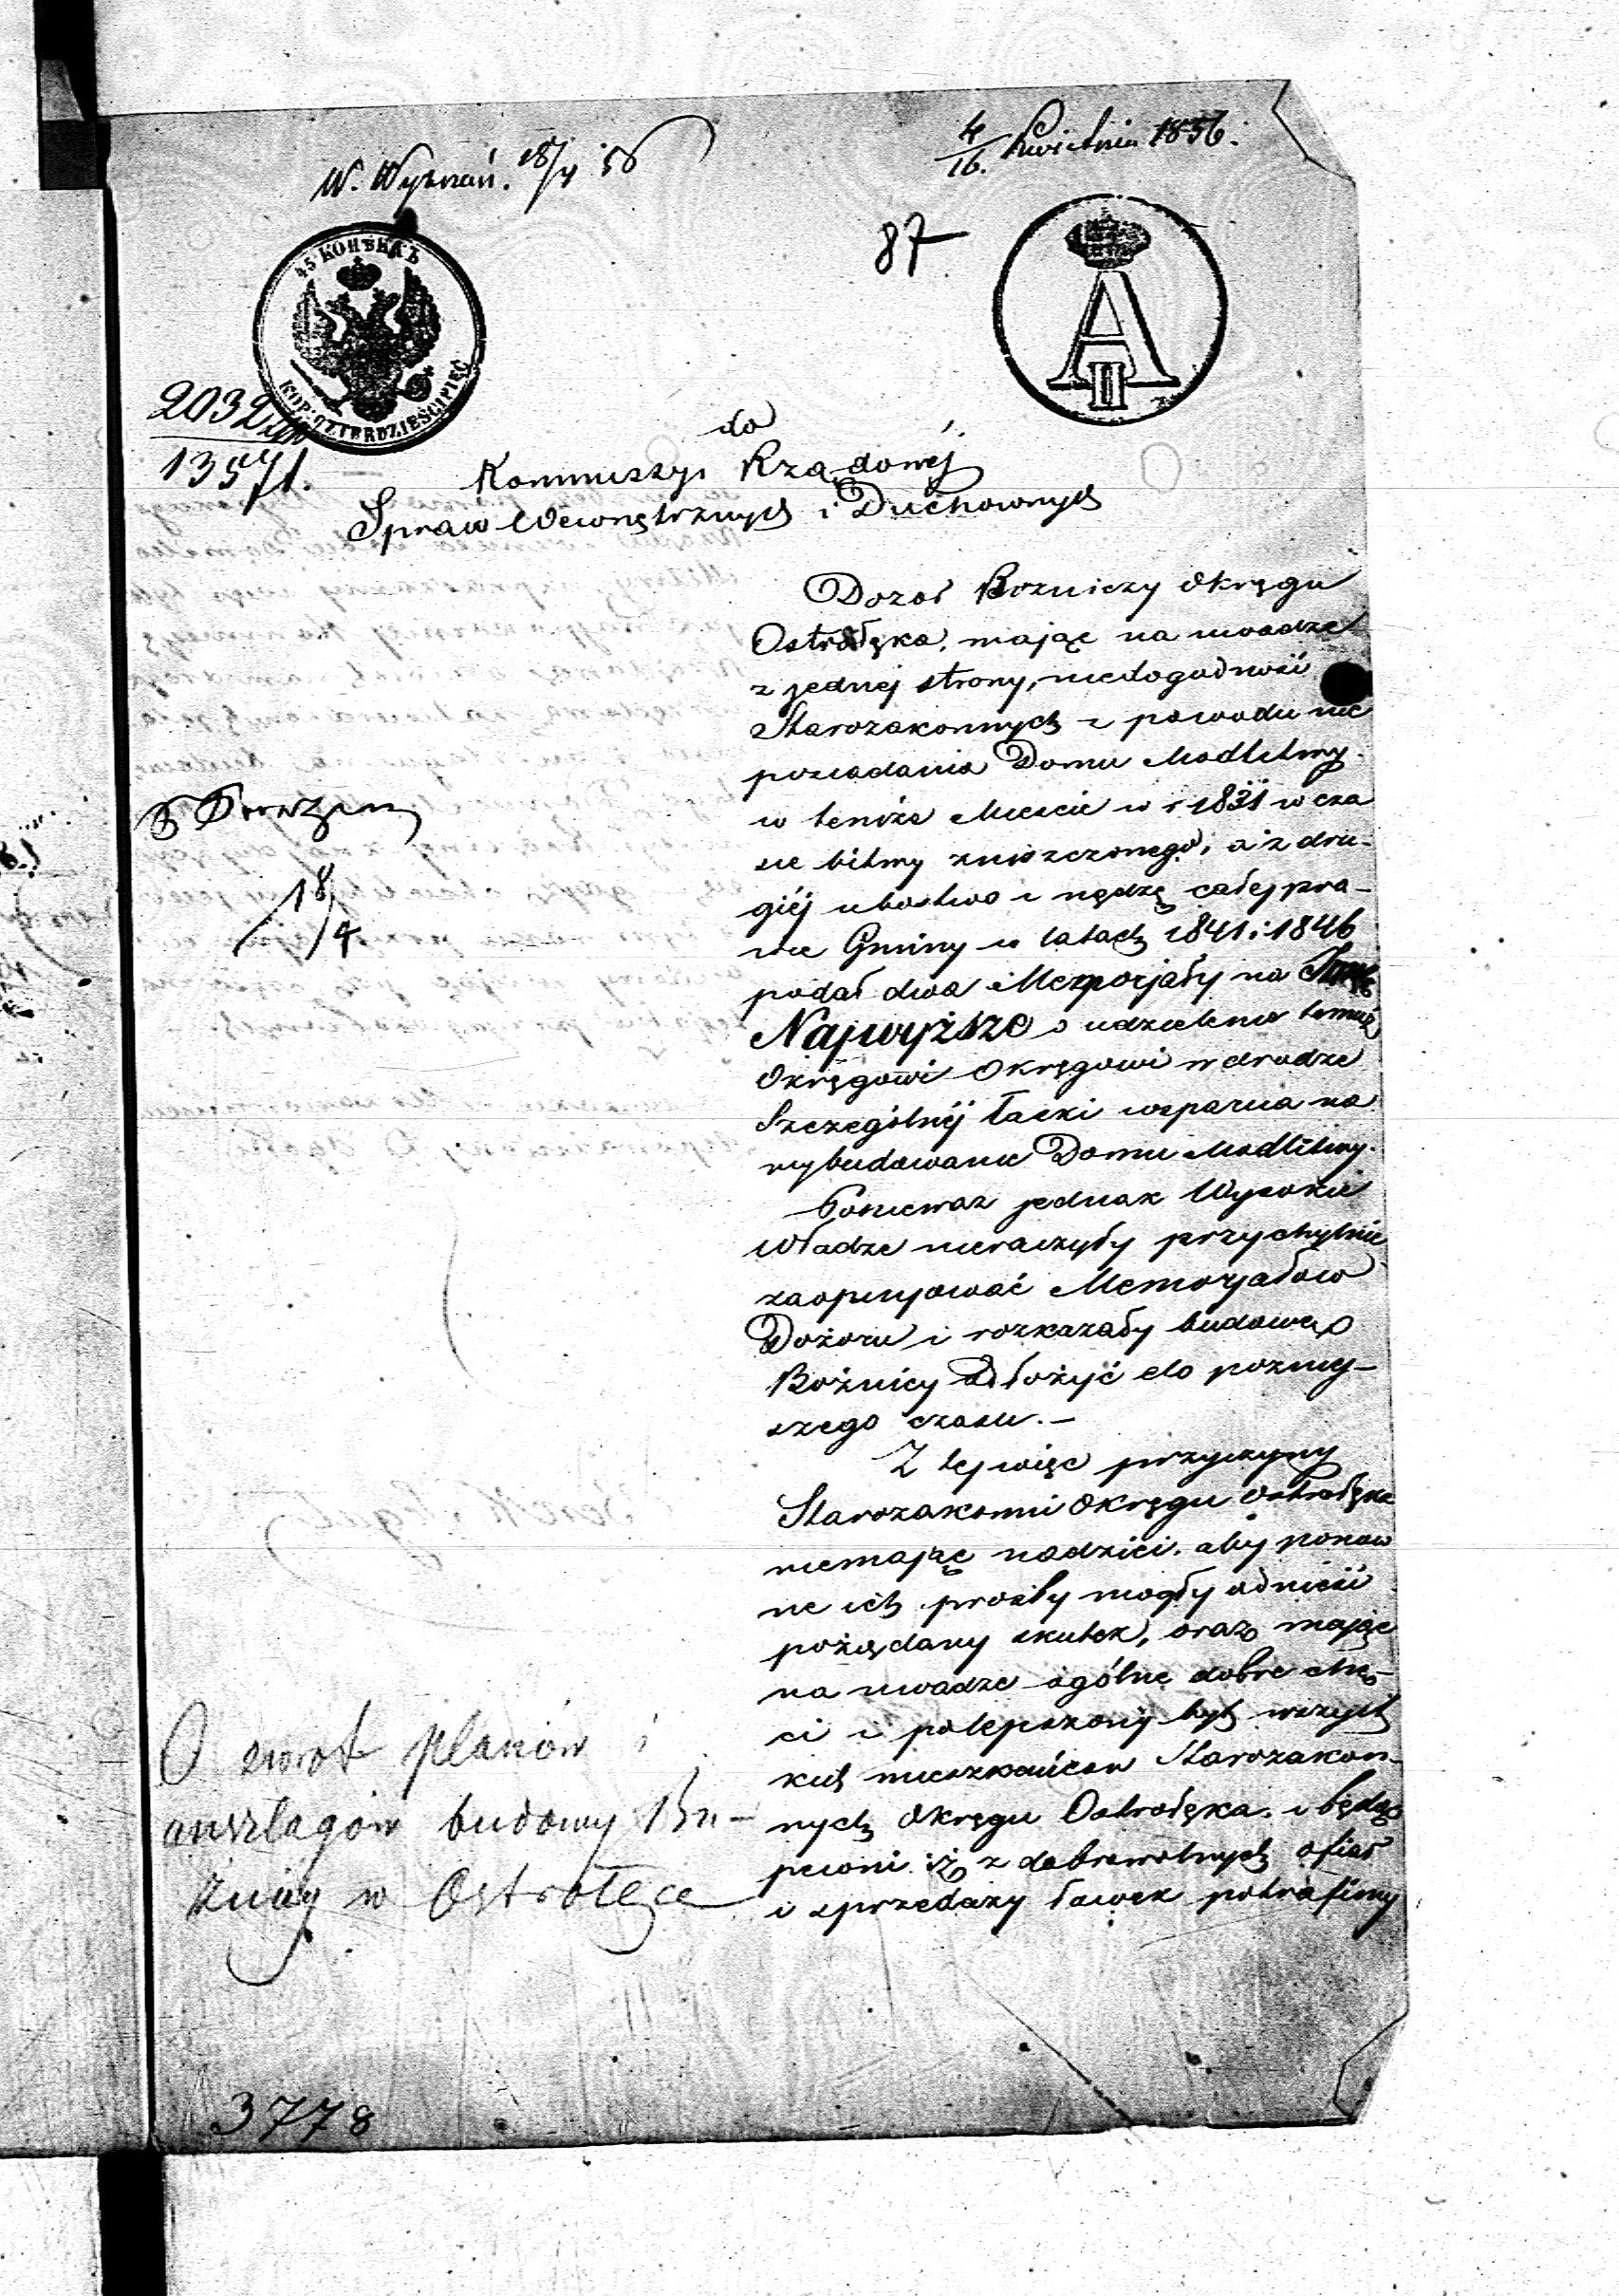 W. Wyznań. 18/4 56
4/16. Kwietnia 1856.
87
45 КОПѢЕКЪ
KOP: CZTERDZIEŚCI PIĘĆ
A II
2032
13571.
do
Kommissyi Rządowéj
Spraw Wewnętrznych i Duchownych
Dozór Bozniczy Okręgu
Ostrołęka, mając na uwadze
z jednej strony, niedogodność
Starozakonnych z powodu nie
posiadania Domu Modlitwy
w temże Mieście w r 1831 w cza
sie bitwy zniszczonego, a z dru-
giéj ubóstwo i nędzę całej pra-
wie Gminy w latach 1841 i 1846
podał dwa Memorjały na Imię
Najwyższe o udzielenie temuż
Okręgowi Okręgowi w drodze
Szczególnéj łaski wsparcia na
wybudowanie Domu Modlitwy.
Ponieważ jednak Wysokie
Władze nieraczyły przychylnie
zaopinjować Memorjałow
Dozoru i rozkazały budowę
Bożnicy odłożyć do pozniej-
szego czasu.-
Z tej więc przyczyny
Starozakonni Okręgu Ostrołęka
niemając nadziei. aby ponow
ne ich prosby mogły odnieść
pożądany skutek, oraz mając
na uwadze ogólne dobre chę-
ci i polepszony byt wszyst
kich mieszkańcow Starozakon-
nych Okręgu Ostrołęka. i będąc
pewni iż z dobrowolnych ofiar
i sprzedaży ławek potrafimy
18/4
O zwrot planów i
anszlagów budowy Bu-
żnicy w Ostrołęce
3778